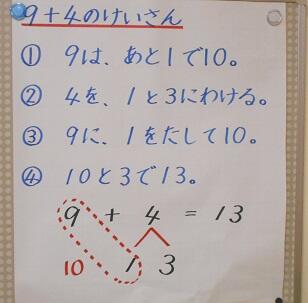 9+4のけいさん
① 9は、あと1で10。
② 4を、1と3にわける。
③ 9に、1をたして10。
④ 10と3で13。
9 + 4 = 13
10 1 3